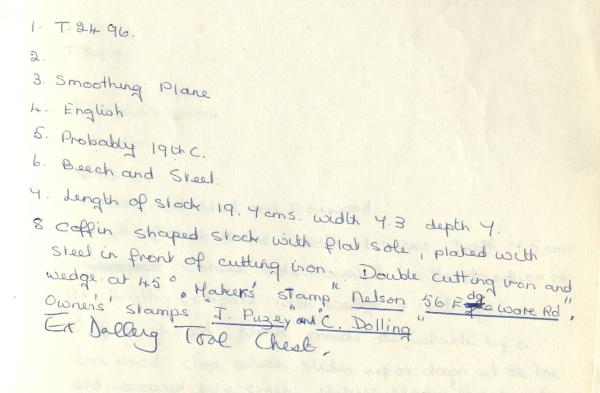 1. T. 24 96.
2.
3. Smoothing Plane
4. English
5. Probably 19th C.
6. Beech and Steel.
7. Length of stock 19.7 cms. width 7.3 depth 7.
8 Coffin shaped stock with flat sole, plated with
steel in front of cutting iron. Double cutting iron and
wedge at 45° "Makers' stamp "Nelson 56 Edgware Rd".
Owners' stamps "J. Puzey" and "C. Dolling"
Ex Dalling Tool Chest.